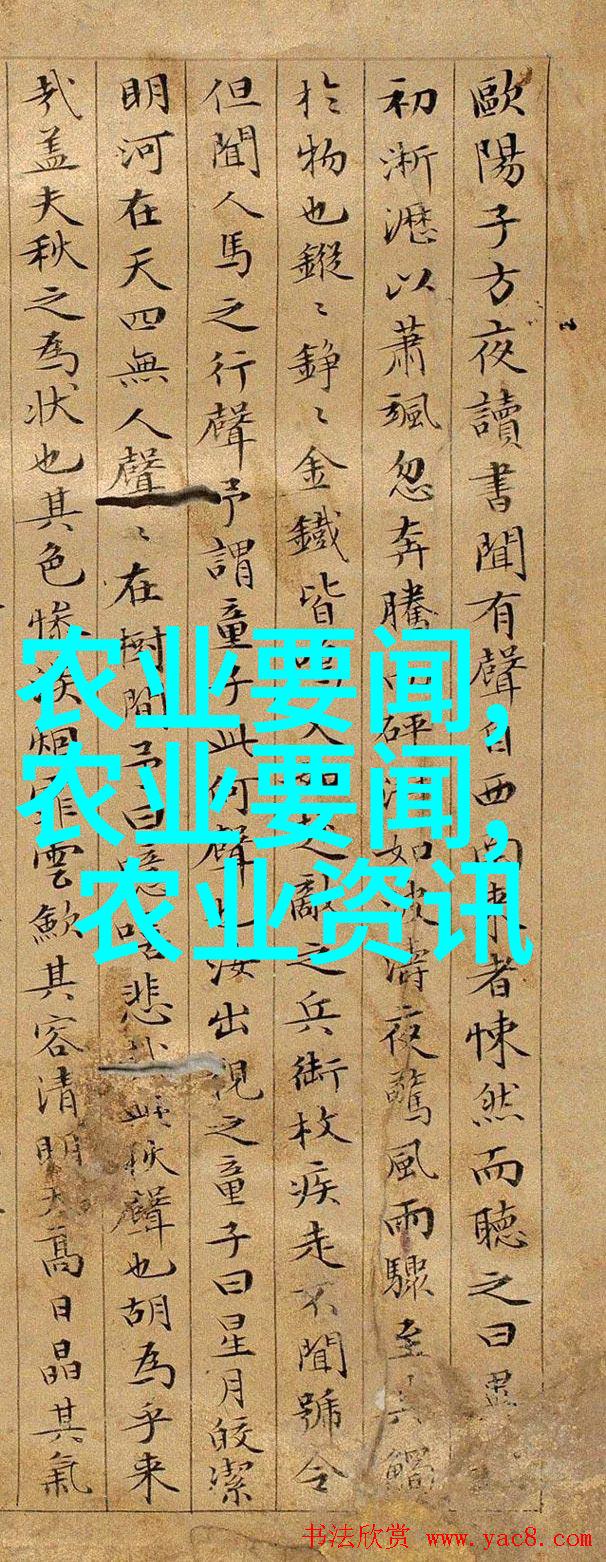 歐陽子方夜讀書聞有聲自西南来者悚然而聽之曰異
初淅瀝以蕭颯忽奔騰而砰湃如波濤夜驚風雨驟至其觸
扵物也鏦〻錚〻金鐵皆鳴又如赴敵之兵銜枚疾走不聞號令
但聞人馬之行聲予謂童子此何聲也汝出視之童子曰星月皎潔
明河在天四無人聲〻在樹間予曰噫嘻悲哉此秋聲也胡為乎来
哉盖夫秋之為狀也其色慘淡烟霏雲歛其容清明天高日晶其氣
农业要闻,
农业要闻,
农业资讯
书法欣赏 www.yac8.com